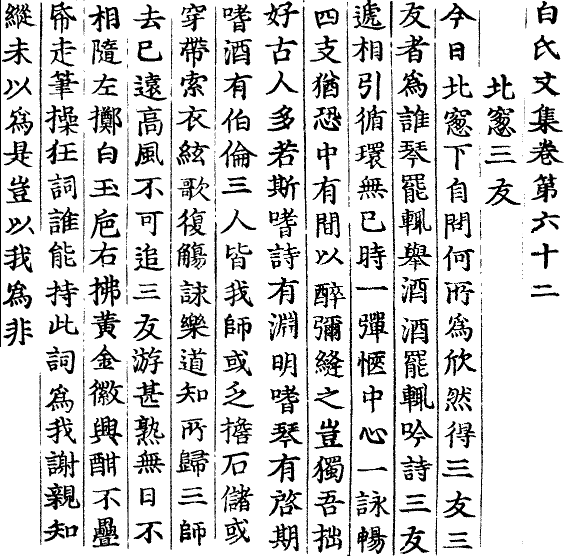 白氏文集卷第六十二
北窻三友
今日北窻下自問何所爲欣然得三友三
友者爲誰琴罷輒舉酒酒罷輒吟詩三友
遞相引循環無已時一彈愜中心一詠暢
四支猶恐中有間以醉彌縫之豈獨吾拙
好古人多若斯嗜詩有淵明嗜琴有啓期
嗜酒有伯倫三人皆我師或乏擔石儲或
穿帶索衣絃歌復觴詠樂道知所歸三師
去已遠高風不可追三友游甚熟無日不
相隨左擲白玉巵右拂黃金徽興酣不疊
帋走筆操狂詞誰能持此詞爲我謝親知
縱未以爲是豈以我爲非